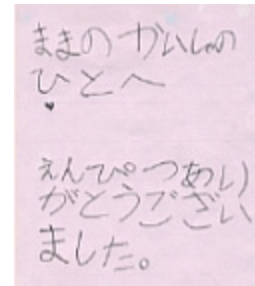 ままの かいしゃの
ひとへ
♥
えんぴつあり
がとうござい
ました。